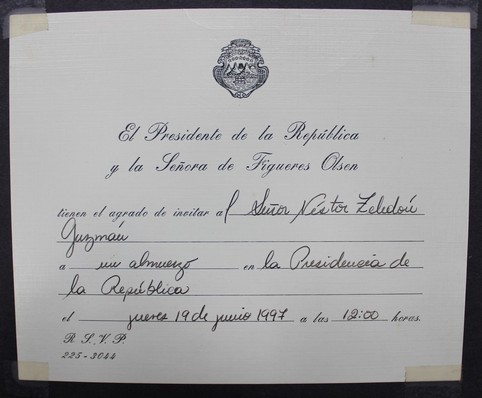 El Presidente de la República
y la Señora de Figueres Olsen
tienen el agrado de invitar al Señor Néstor Zeledón
Guzmán
a un almuerzo en la Presidencia de
la República
el jueves 19 de junio 1997 a las 12:00 horas.
R. S. V. P.
225-3044